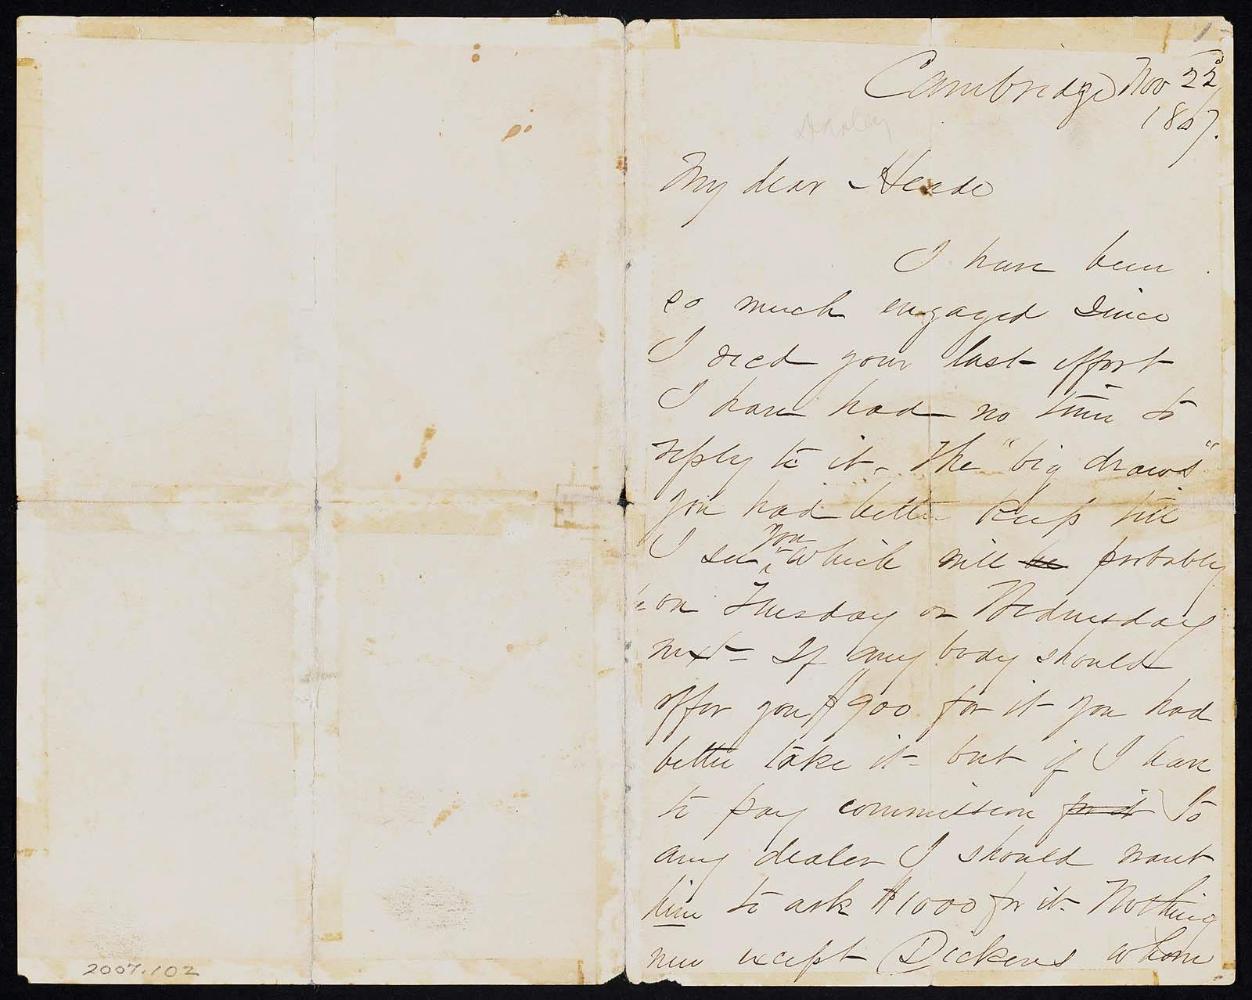 1
Cambridge Nov 22d
1867.
Darley
My dear Heade
I have been
so much engaged since
I recd your last effort
I have had no time to
reply to it. The "big draws"
you had better keep till
I see you which will be probably
on Tuesday or Wednesday
next- If any body should
offer you $900 for it you had
better take it- but if I have
to pay commission for it to
any dealer I should want
him to ask $1000 for it. Nothing
new except Dickens whom
2007.102